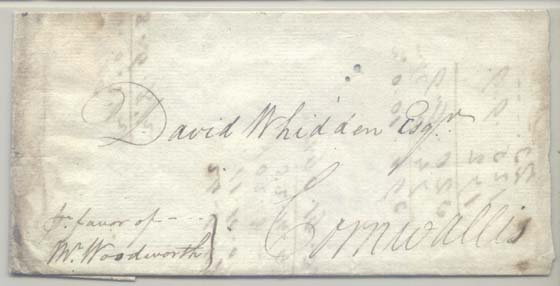 David Whidden Esqr.
Cornwallis
pr. favor of
Mr. Woodworth